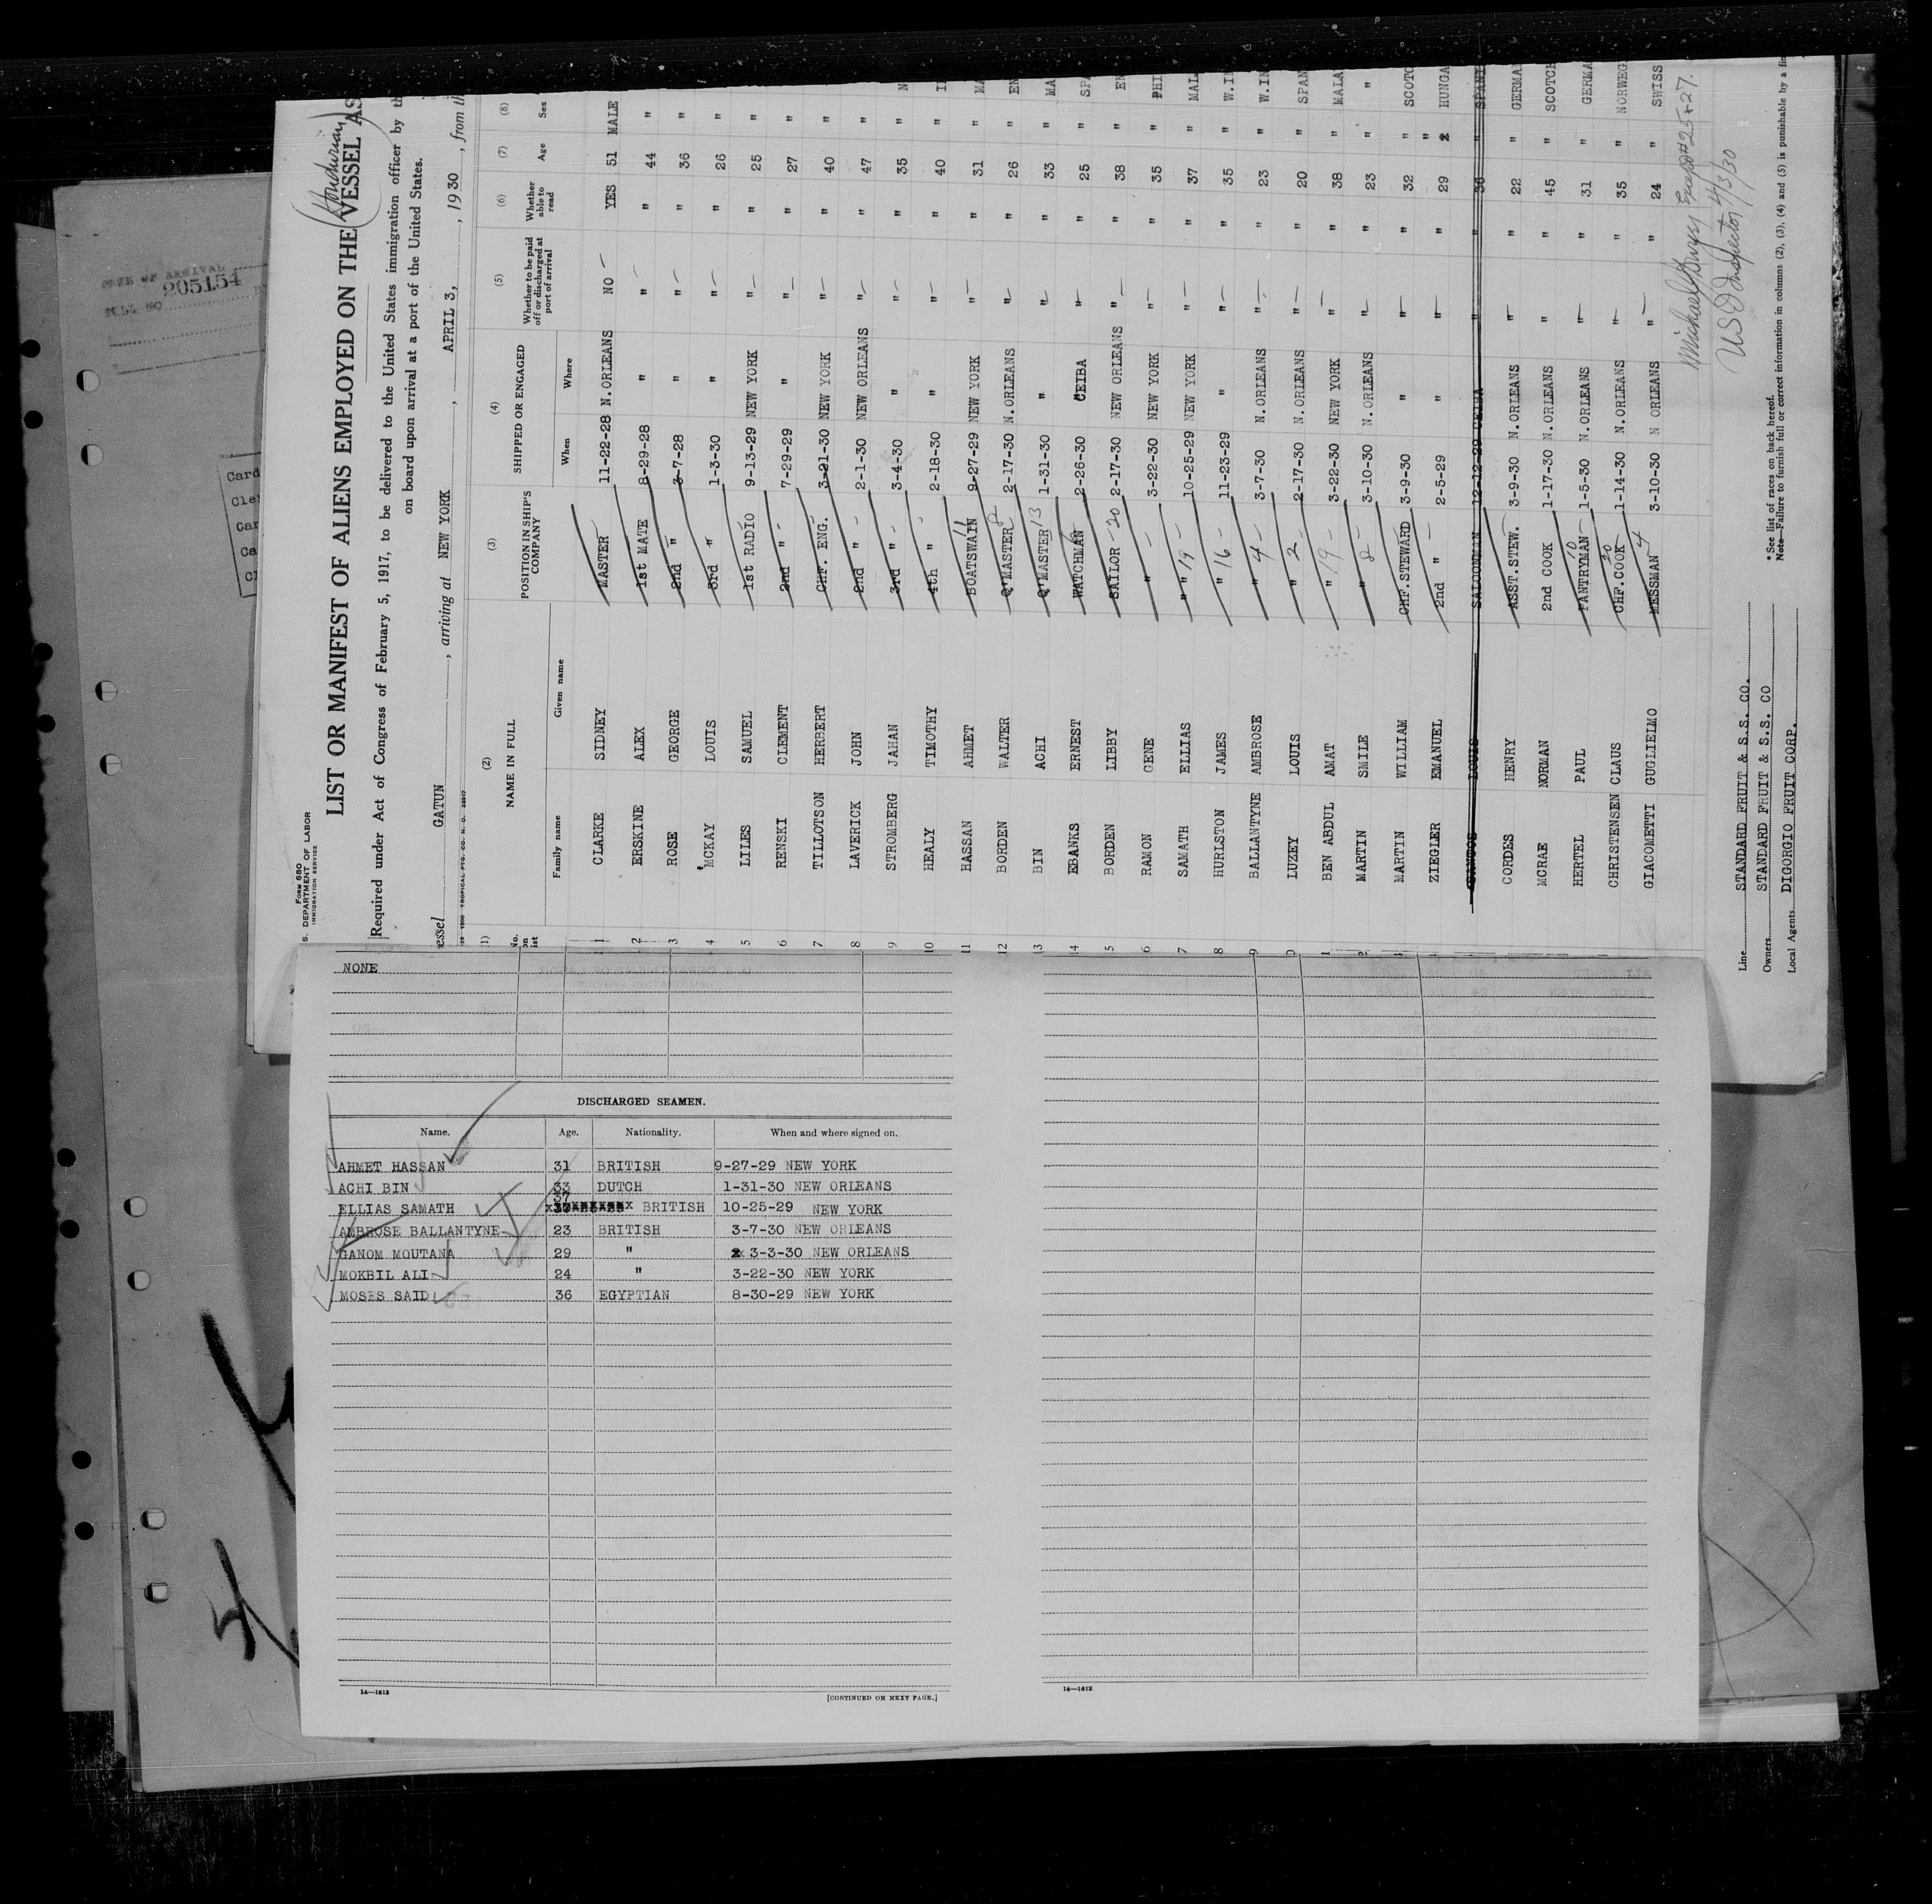 Form 680
S. DEPARTMENT OF LABOR
IMMIGRATION SERVICE
Honduran
LIST OR MANIFEST OF ALIENS EMPLOYED ON THE VESSEL AS
Required under Act of Congress of February 5, 1917, to be delivered to the United States immigration officer by th
on board upon arrival at a port of the United States.
essel GATUN , arriving at NEW YORK , APRIL 3, , 1930 , from th
(1) (2) (3) (4) (5) (6) (7) (8)
No. on ist NAME IN FULL POSITION IN SHIP'S COMPANY SHIPPED OR ENGAGED Whether to be paid off or discharged at port of arrival Whether able to read Age Sex
Family name Given name When Where
1 CLARKE SIDNEY MASTER 11-22-28 N.ORLEANS NO — YES 51 MALE
2 ERSKINE ALEX 1st MATE 8-29-28 " " — " 44 "
3 ROSE GEORGE 2nd " 3-7-28 " " — " 36 "
4 'MCKAY LOUIS 3rd " 1-3-30 " " — " 26 "
5 LILES SAMUEL 1st RADIO 9-13-29 NEW YORK " — " 25 "
6 RENSKI CLEMENT 2nd " 7-29-29 " " — " 27 "
7 TILLOTSON HERBERT CHF. ENG. 3-21-30 NEW YORK " — " 40 "
8 LAVERICK JOHN 2nd " 2-1-30 NEW ORLEANS " — " 47 "
9 STROMBERG JAHAN 3rd " 3-4-30 " " — " 35 " N
10 HEALY TIMOTHY 4th " 2-18-30 " " — " 40 " I
11 HASSAN AHMET BOATSWAIN 11 9-27-29 NEW YORK " — " 31 " MA
12 BORDEN WALTER Q'MASTER 2-17-30 N.ORLEANS " — " 26 " EN
13 BIN ACHI Q'MASTER 13 1-31-30 " " — " 33 " MA
14 EBANKS ERNEST WATCHMAN 2-26-30 CEIBA " — " 25 " SPA
5 BORDEN LIBBY SAILOR -20 2-17-30 NEW ORLEANS " — " 38 " EN
6 RAMON GENE " — 3-22-30 NEW YORK " — " 35 " PHI
7 SAMATH ELLIAS " 19 — 10-25-29 NEW YORK " — " 37 " MAL
8 HURLSTON JAMES " 16 — 11-23-29 " " — " 35 " W.I
9 BALLANTYNE AMBROSE " 4 — 3-7-30 N.ORLEANS " — " 23 " W.IN
0 LUZEY LOUIS " 2 — 2-17-30 N.ORLEANS " — " 20 " SPAN
1 BEN ABDUL AMAT " 19 — 3-22-30 NEW YORK " — " 38 " MALA
2 MARTIN SMILE " 8 — 3-10-30 N.ORLEANS " — " 23 " "
MARTIN WILLIAM CHF.STEWARD 3-9-30 " " — " 32 " SCOTC
ZIEGLER EMANUEL 2nd " — 2-5-29 " " — " 29 " HUNGA
SANTOS LOUIS SALOONMAN 12-12-29 CEIBA " " 36 " SPANI
CORDES HENRY ASST.STEW. 3-9-30 N.ORLEANS " — " 22 " GERMA
MCRAE NORMAN 2nd COOK 1-17-30 N.ORLEANS " " 45 " SCOTCH
HERTEL PAUL PANTRYMAN 10 1-5-30 N.ORLEANS " — " 31 " GERMA
CHRISTENSEN CLAUS CHF.COOK 20 1-14-30 N.ORLEANS " — " 35 " NORWEG
GIACOMETTI GUGLIELMO MESSMAN 4 3-10-30 N ORLEANS " — " 24 " SWISS
25+27.
US Inspector 4/3/30
Line STANDARD FRUIT & S.S. CO.
Owners STANDARD FRUIT & S.S. CO
Local Agents DIGORGIO FRUIT CORP.
* See list of races on back hereof.
Note—Failure to furnish full or correct information in columns (2), (3), (4) and (5) is punishable by a fin
OF ARRIVAL
205154
Card
Cle
Car
Ca
NONE
DISCHARGED SEAMEN.
Name. Age. Nationality. When and where signed on.
AHMET HASSAN 31 BRITISH 9-27-29 NEW YORK
ACHI BIN 33 DUTCH 1-31-30 NEW ORLEANS
ELLIAS SAMATH 37 BRITISH 10-25-29 NEW YORK
AMBROSE BALLANTYNE 23 BRITISH 3-7-30 NEW ORLEANS
GANOM MOUTANA 29 " 3-3-30 NEW ORLEANS
MOKBIL ALI 24 " 3-22-30 NEW YORK
MOSES SAID 36 EGYPTIAN 8-30-29 NEW YORK
14—1612
[CONTINUED ON NEXT PAGE.]
14—1612